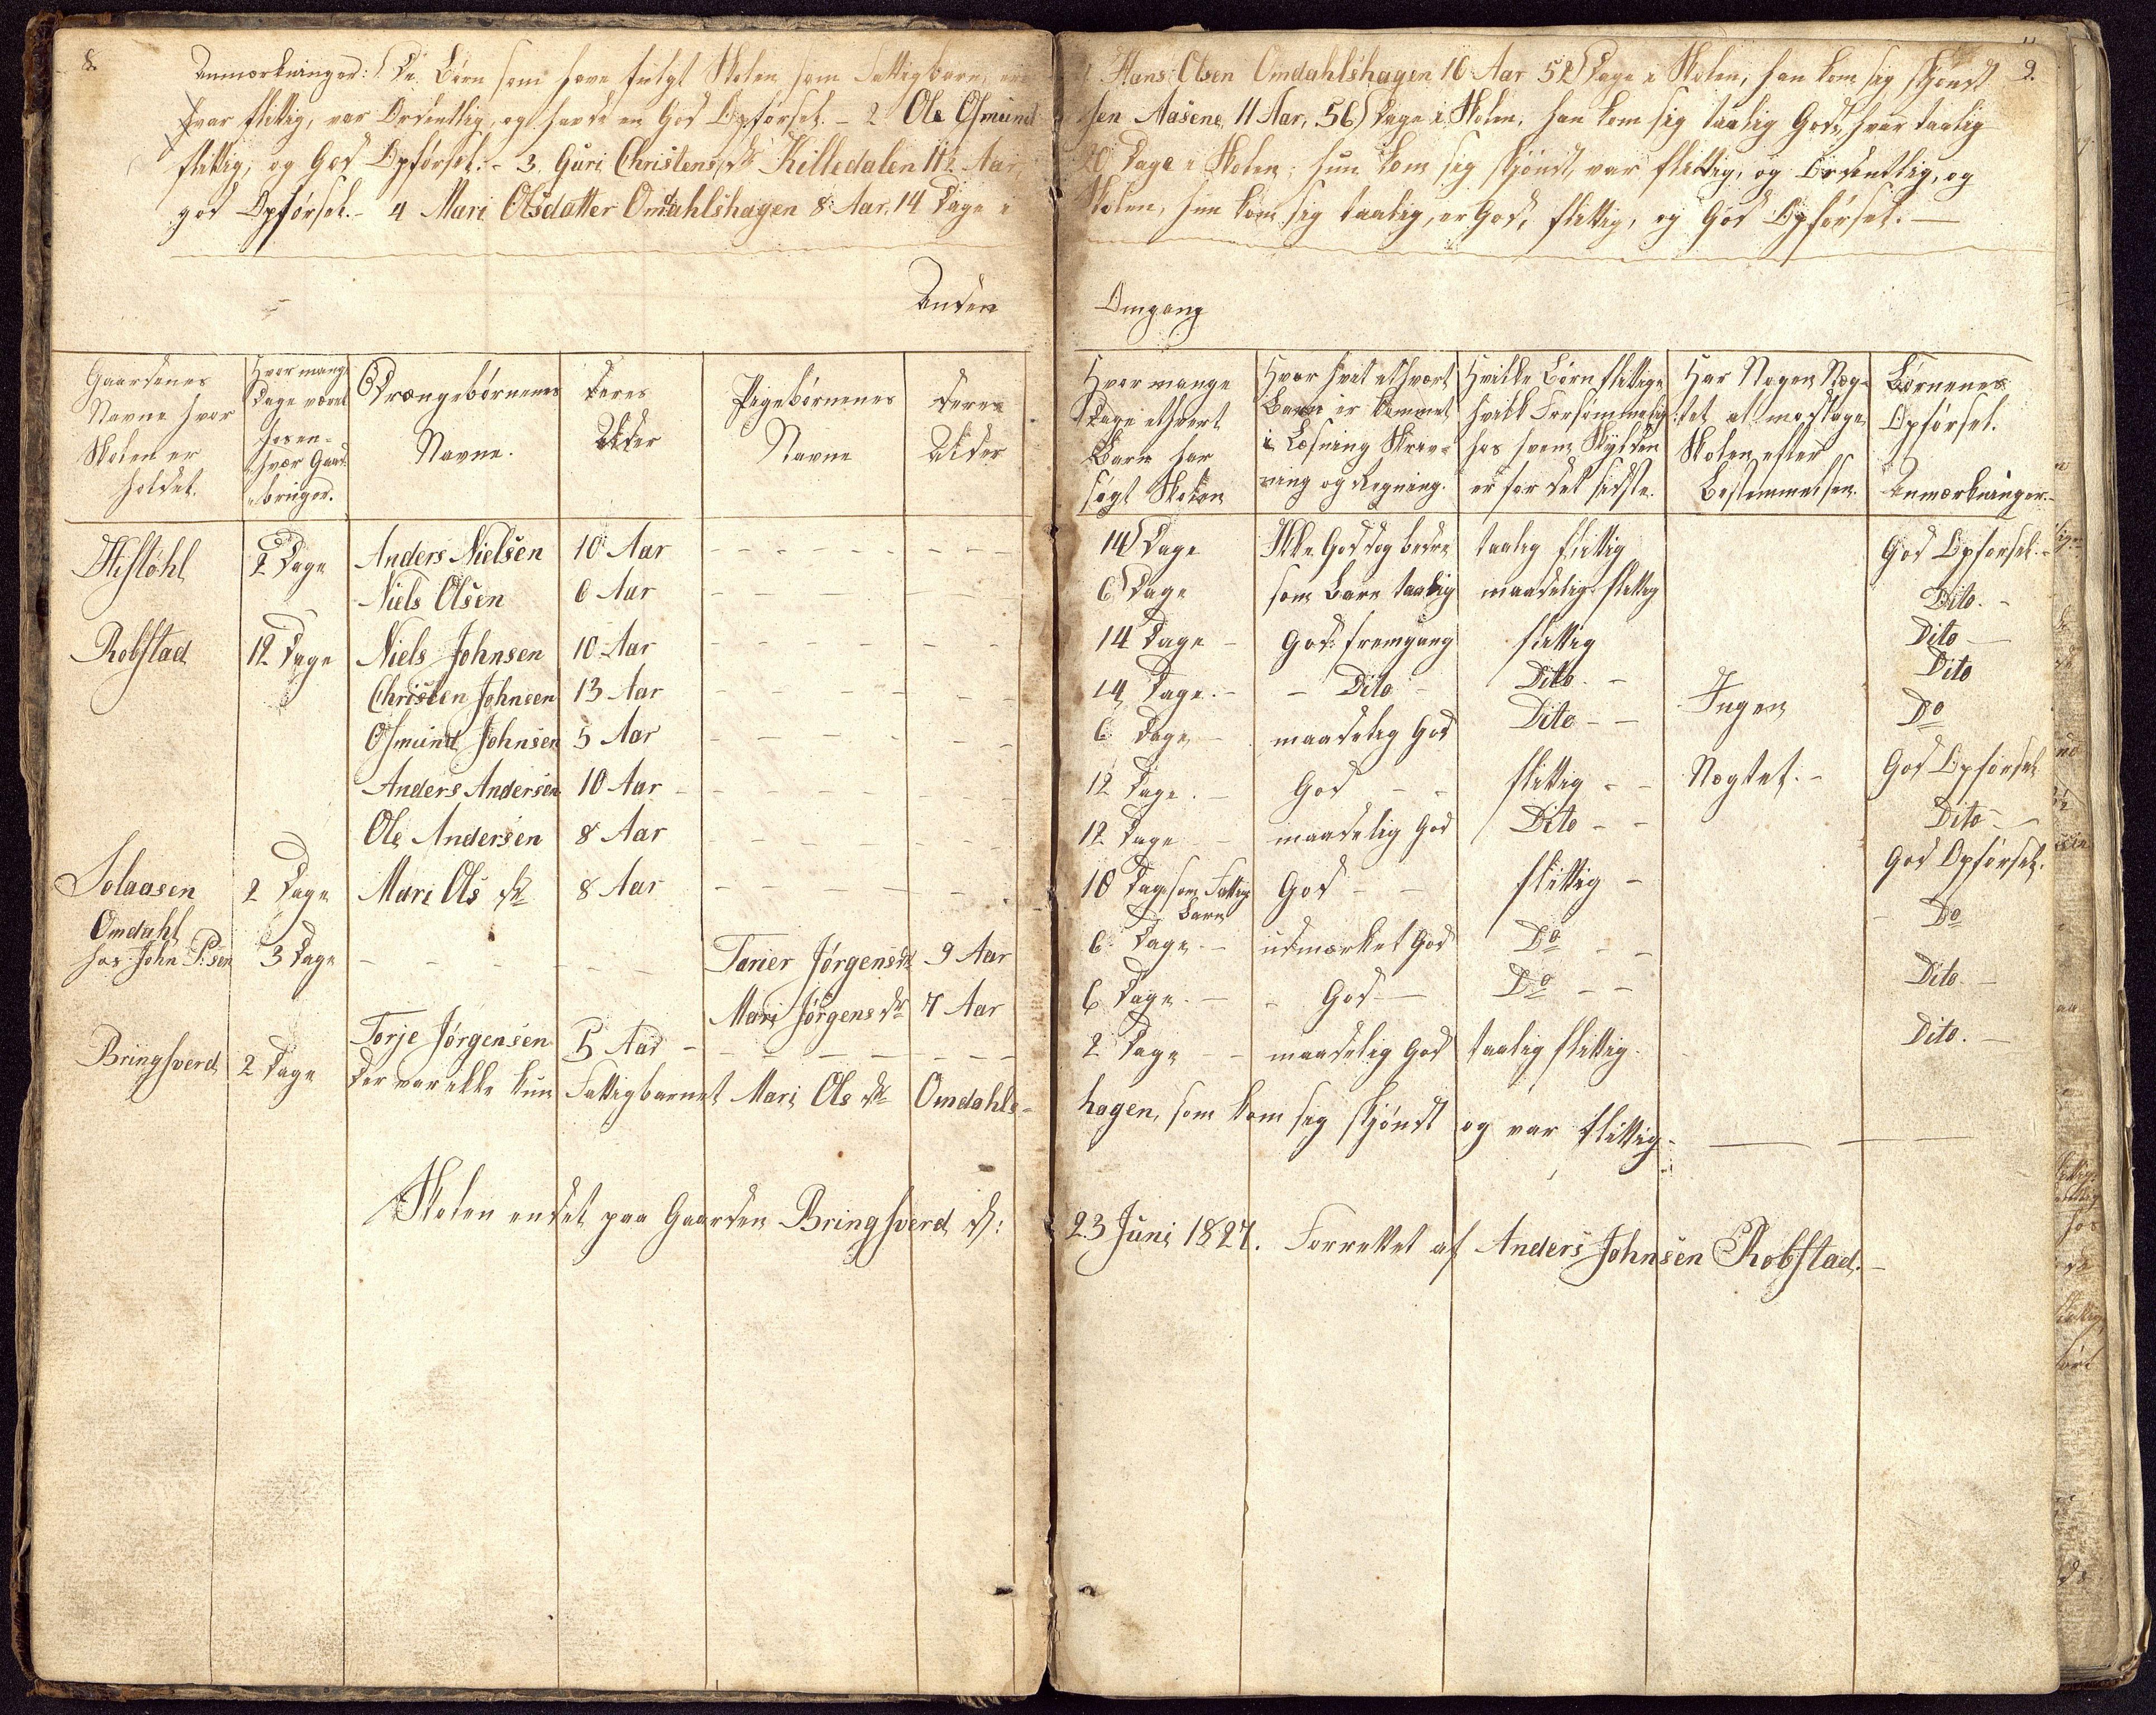 8.
Anmærkninger: De Børn som have fulgt Skolen som Fattigbarn, ere
var flittig, var Ordentlig, og havde en God Opførsel. - 2 Ole Osmund
flittig, og God Opførsel. - 3. Guri Christensdr Killedalen 11½ Aar,
god Opførsel. - 4 Mari Olsdatter Omdahlshagen 8 Aar, 14 Dage i
Anden
Gaardenes Navne hvor Skolen er holdet.
Hvor mange Dage været hos en-hver Gaard-bruger.
Drængebørnenes Navne.
Deres Alder
Pigebørnenes Navne
Deres Alder
2 Dage Anders Nielsen 10 Aar
Niels Olsen 6 Aar
Robstad 12 Dage Niels Johnsen 10 Aar
Christen Johnsen 13 Aar
Osmund Johnsen 5 Aar
Anders Andersen 10 Aar
Ole Andersen 8 Aar
Solaasen 2 Dage Mari Ols dr 8 Aar
Omdahl
hos John P:sen 3 Dage Tarier Jørgensdr 9 Aar
Mari Jørgensdr 7 Aar
Torje Jørgensen 5 Aar
Bringsverd 2 Dage Der var ikke kun Fattigbarnet Mari Ols dr Omdahls-
Skolen endet paa Gaarden Bringsverd d:
9.
1 Hans Olsen Omdahlshagen 10 Aar 52 Dage i Skolen, han kom sig skjønst
sen Aasene, 11 Aar, 56 Dage i Skolen, han kom sig taalig God, hvar taalig
20 Dage i Skolen, hun kom sig skjønst, var flittig, og Ordentlig, og
Skolen, hun kom sig taalig, er God, flittig, og God Opførsel. —
Omgang
Hvor mange Dage ethvert Barn har søgt Skolen
Hvor hvit ethvert Barn er kommet i Læsning Skrivning og Regning.
Hvilke Børn flittige hvilke Forsømmelige hos hvem Skylden er for det sidste.
Har Nogen Nægtet at modtage Skolen efter Bestemmelsen.
Børnenes Opførsel. Anmærkninger.
14 Dage Ikke God dog bedre taalig flittig God Opførsel. -
6 Dage som Barn taalig maadelig flittig Dito. -
14 Dage - God fremgang flittig Dito -
14 Dage. - - Dito - Dito. - Dito
6 Dage - maadelig God Dito - - Ingen Do
12 Dage. - God - - flittig - - Nægtet. - God Opførsel
12 Dage - maadelig God Dito - - Dito -
10 Dage som Fattig Barn God - - flittig - God Opførsel.
6 Dage. - udmærket God Do - - - Do
6 Dage. - - God - Do - - Dito. -
2 Dage - - maadelig God taalig flittig. Dito. -
hagen, som kom sig skjønst og var flittig. -
23 Juni 1827. Forrettet af Anders Johnsen Robstad. -